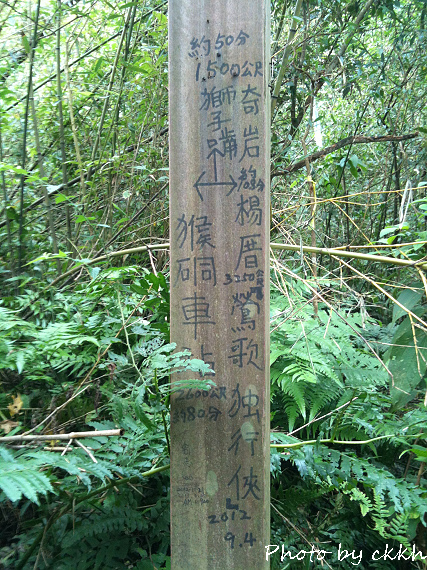 約50分
1.500公尺
獅子嘴
奇岩
猴硐車
2600公尺
80分
楊厝鶯歌独行俠
3250公
2012
9.4
Photo by ckkh